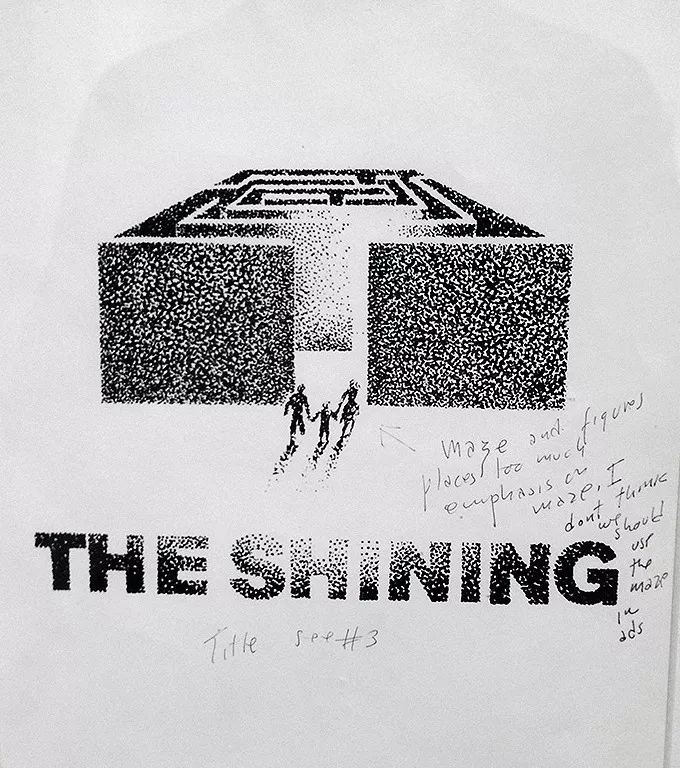 maze and figures
places too much
emphasis on
maze. I
dont think
we should
use
the
maze
in
ads
THE SHINING
Title see #3